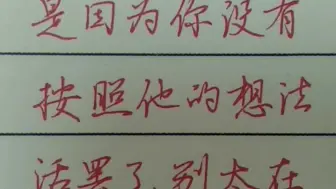 是因为你没有
按照他的想法
活罢了别太在